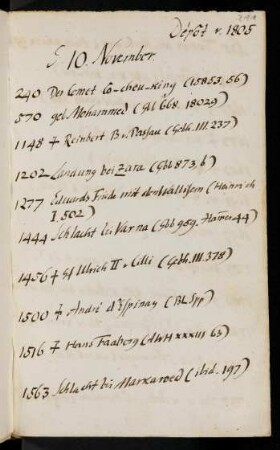 Dépôt v. 1805
10. November
240 Der Comet Co-cheu-king (15853, 56)
570 geb Mohammed (Gbl 668. 18029)
1148 † Reinbert B v. Passau (Gebh. III. 237)
1202 Landung bei Zara (Gbb 873, b)
1277 Eduards Friede mit den Wallisern (Heinrich
I. 502)
1444 Schlacht bei Varna (Gbb 959. Hamer 44)
1456 † Gf Ulrich II v Cilli (Gebh. III. 378)
1500 † André d'Espinay (BL Spp)
1516 † Hans Faaborg (AWH XXXVI 63)
1563 Schlacht bei Marxaroed (ibid. 197)